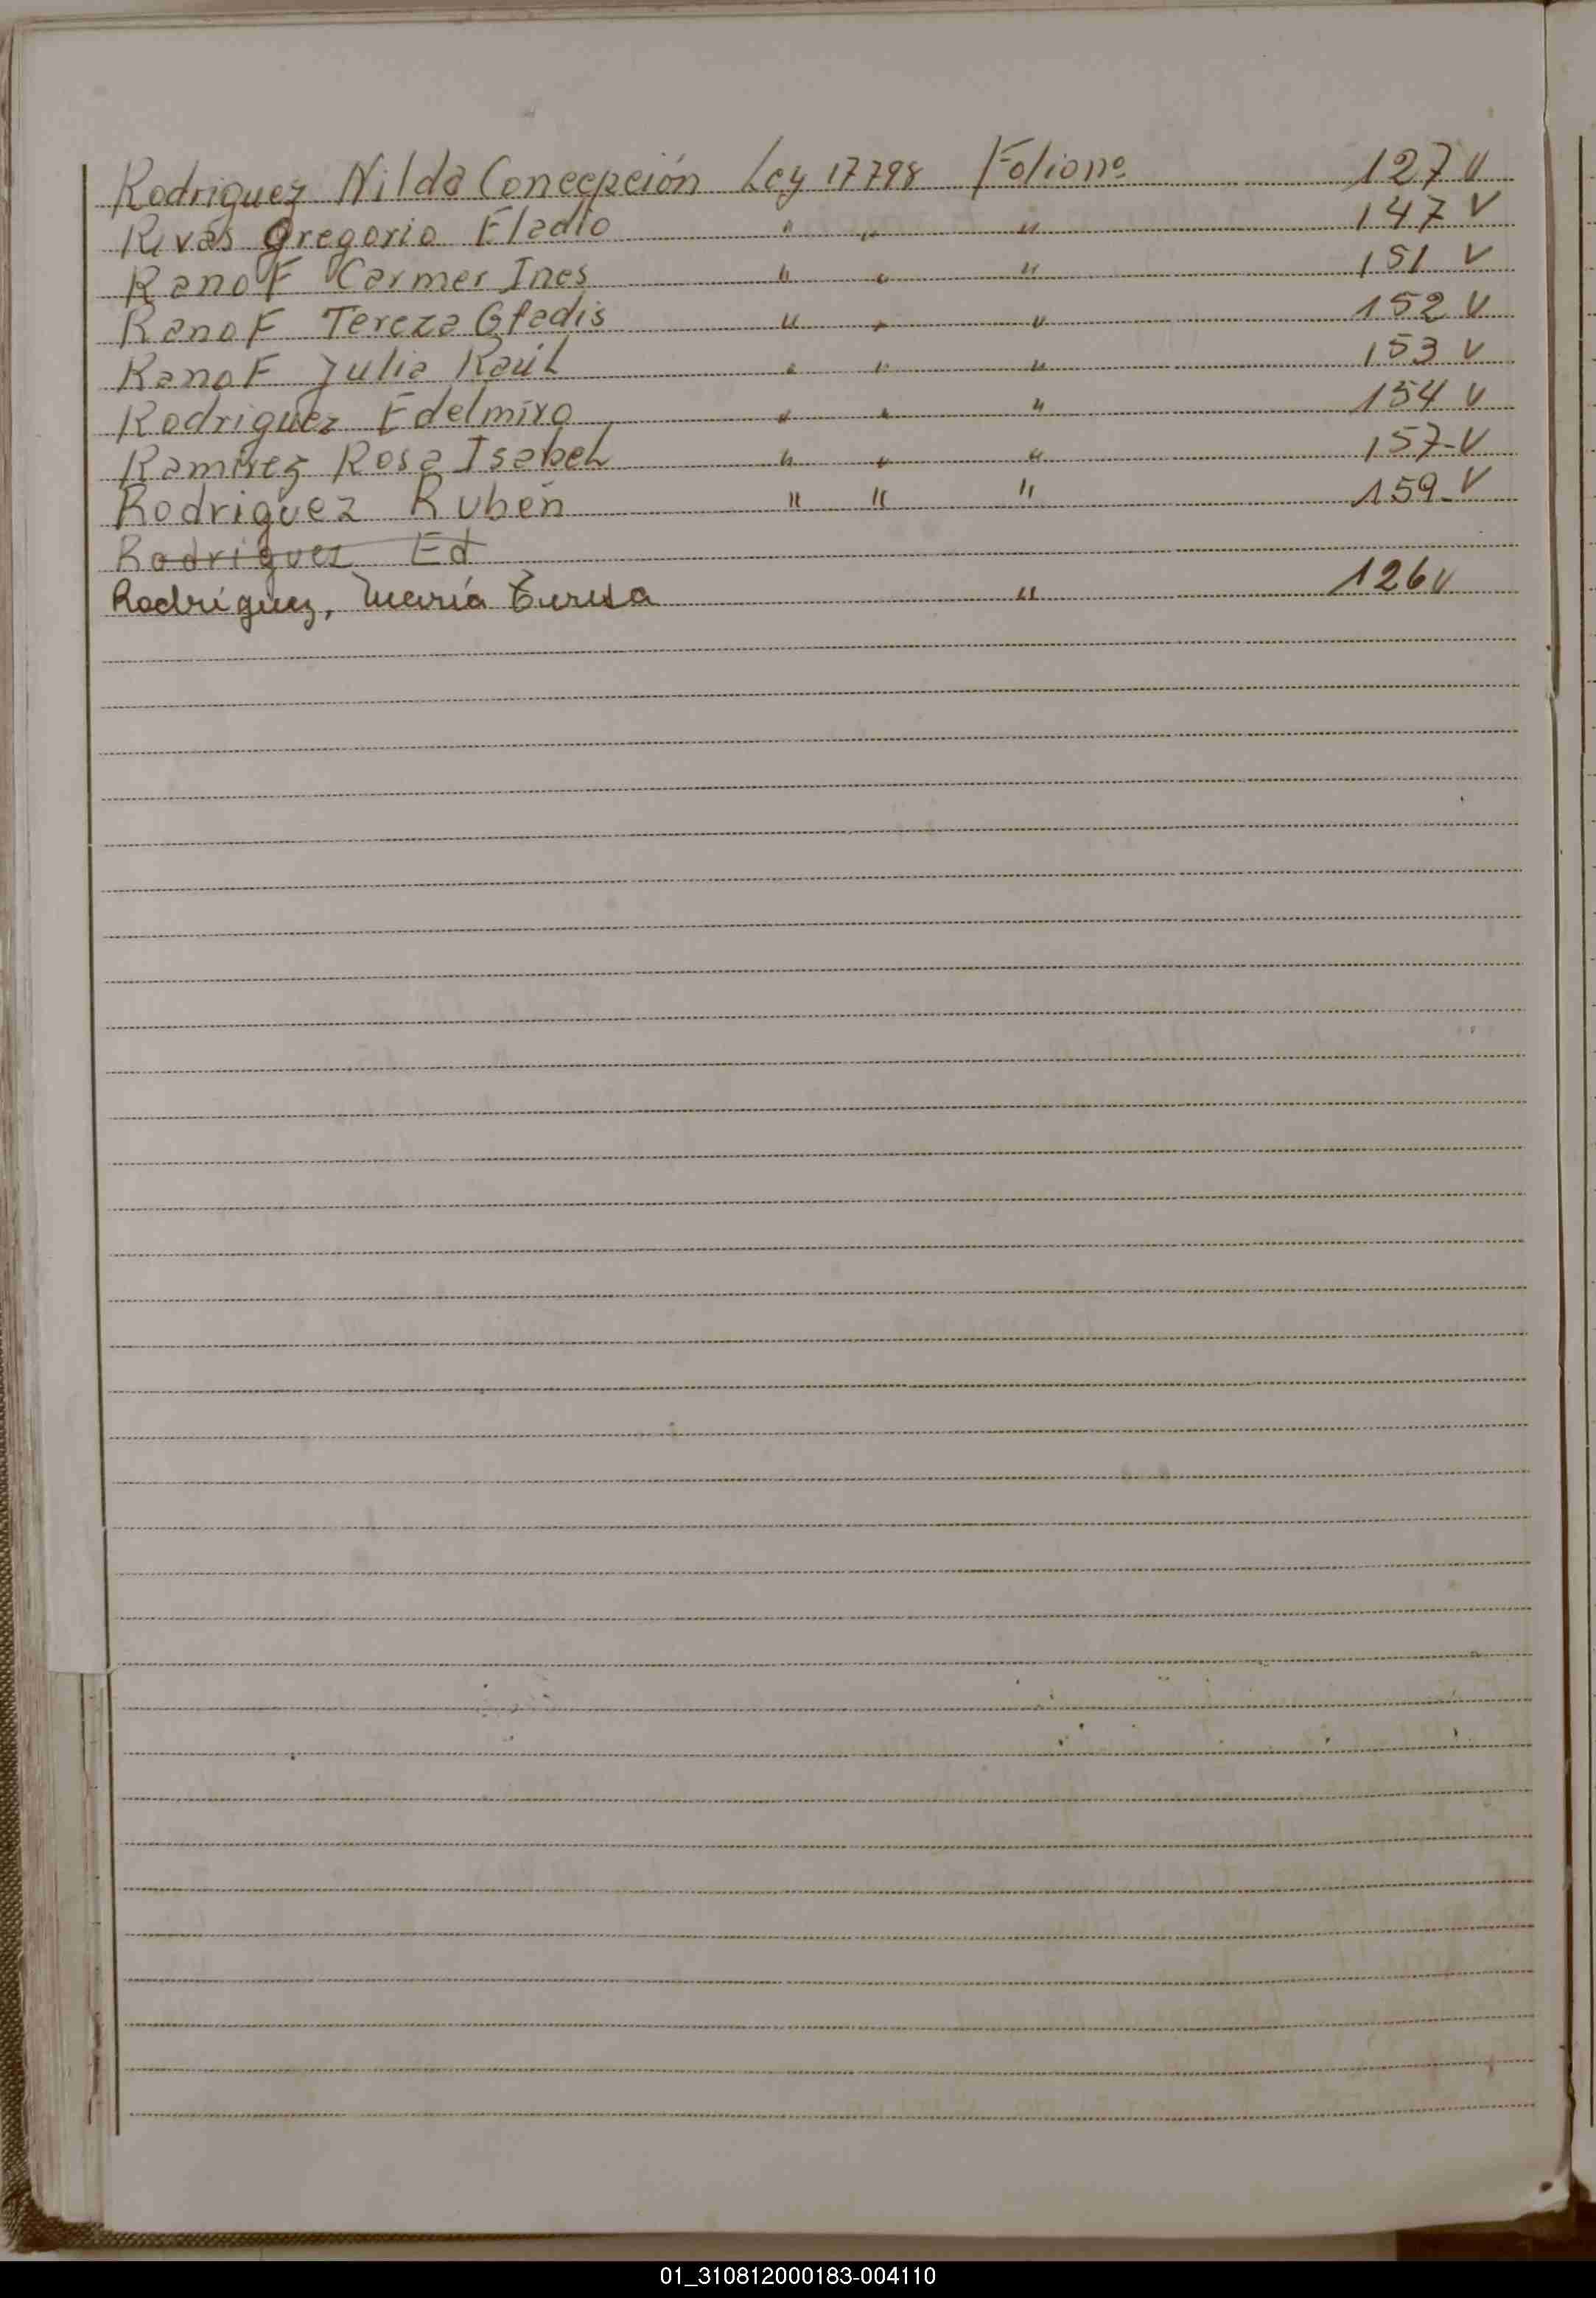 Rodriguez Nilda Concepción Ley 17798 Folio nº 127 V
Rivas Gregorio Eladio " " " 147 V
Ranof Carmer Ines " " " 151 V
Ranof Tereza Gladis " " " 152 V
Ranof Julia Raúl " " " 153 V
Rodriguez Edelmiro " " " 154 V
Ramirez Rosa Isabel " " " 157-V
Rodriguez Rubén " " " 159-V
Rodriguez Ed
Rodríguez, María Teresa " 126 V
01_310812000183-004110